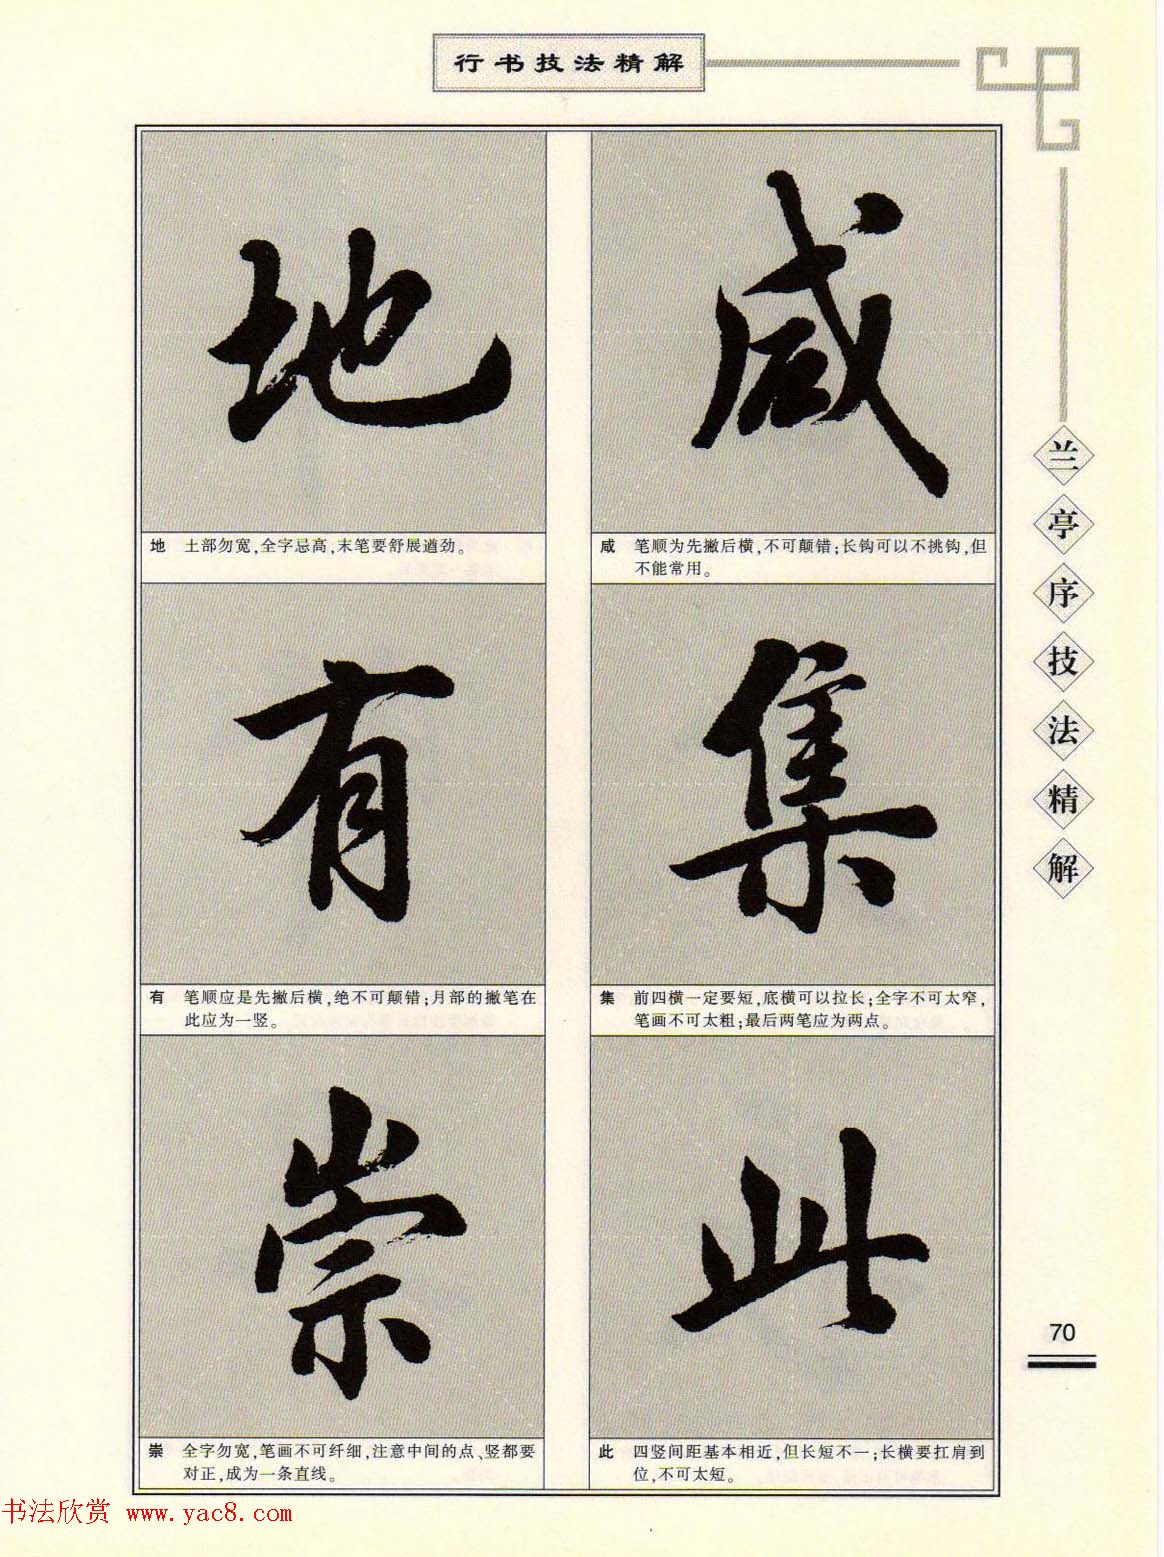 行书技法精解
咸
咸 笔顺为先撇后横,不可颠错;长钩可以不挑钩,但
不能常用。
集
集 前四横一定要短,底横可以拉长;全字不可太窄,
笔画不可太粗;最后两笔应为两点。
此
此 四竖间距基本相近,但长短不一;长横要扛肩到
位,不可太短。
地
地 土部勿宽,全字忌高,末笔要舒展遒劲。
有
有 笔顺应是先撇后横,绝不可颠错;月部的撇笔在
此应为一竖。
崇
崇 全字勿宽,笔画不可纤细,注意中间的点、竖都要
对正,成为一条直线。
兰亭序技法精解
70
书法欣赏 www.yac8.com